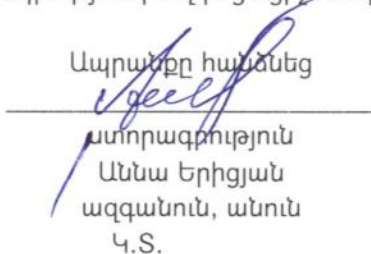 Ապրանքը հանձնեց
ստորագրություն
Աննա Երիցյան
ազգանուն, անուն
Կ.Տ.